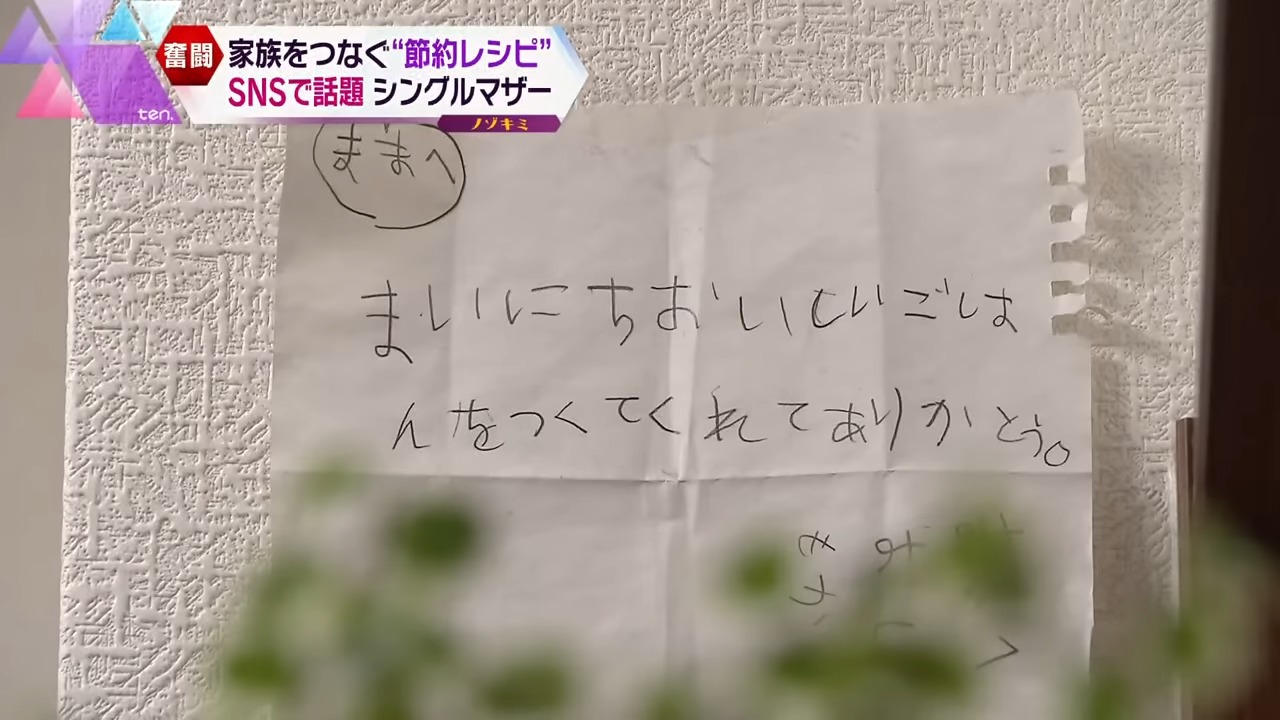 奮闘
家族をつなぐ“節約レシピ”
SNSで話題 シングルマザー
ten.
ノゾキミ
ままへ
まいにちおいしいごは
んをつくてくれてありかとう。